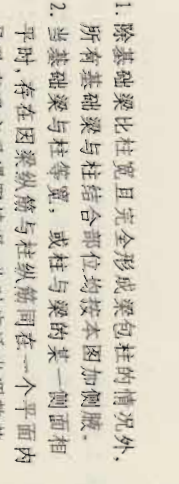 1. 除基础梁比柱宽且完全形成梁包柱的情况外,
所有基础梁与柱结合部位均按本图加侧腋。
2. 当基础梁与柱等宽, 或柱与梁的某一侧面相
平时, 存在因梁纵筋与柱纵筋同在一个平面内